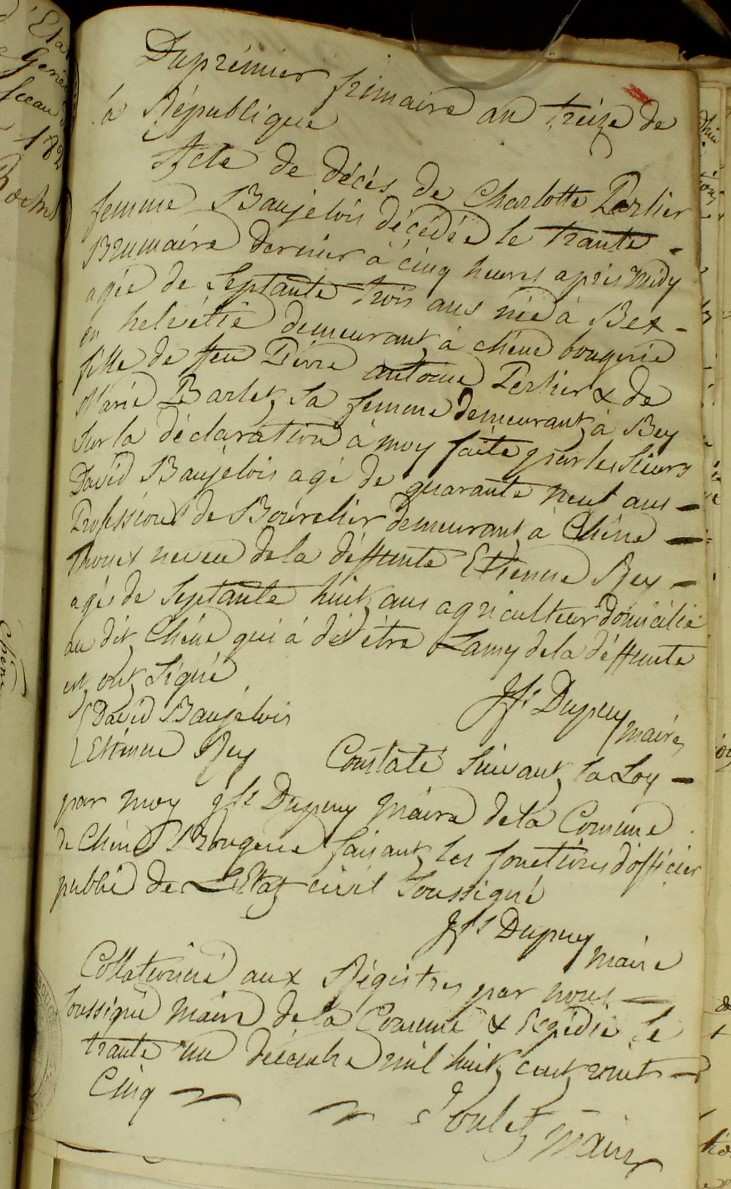 Du prémier frimaire an treize de
la République
Acte de décès de Charlotte Perlier
femme Baujelois décédée le trante
Brumaire dernier à cinq heures après midy
agée de Septante trois ans née à Bex
en helvétie demeurant à chêne bougerie
fille de feu Pierre antoine Perlier & de
Marie Barlet sa femme demeurant à Bey
Sur la déclaration à moy faite par les Sieurs
David Baujelois agé de quarante neuf ans
Profession de Bourelier demeurant à Chêne
neveu de la déffunte Etienne Rey
agé de Septante huit ans agriculteur domicilié
au dit Chêne qui à dit être Lamy de la déffunte
et ont Signé
David Baujelois
Jfs Dupuy maire
Etienne Rey Constaté Suivant la Loy
par moy Jfs Dupuy Maire de la Comune
de Chêne Bougerie faisant les fonctions d'officier
public de L'Etat civil Soussigné
Jfs Dupuy maire
Collationné aux Régistres par nous
soussigné Maire de la Comune & Expédié le
trante un décembre mil huit cent vint
Cinq
maire